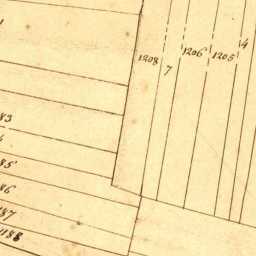 4
1208 7 1206 1205
83
85
86
187
1188